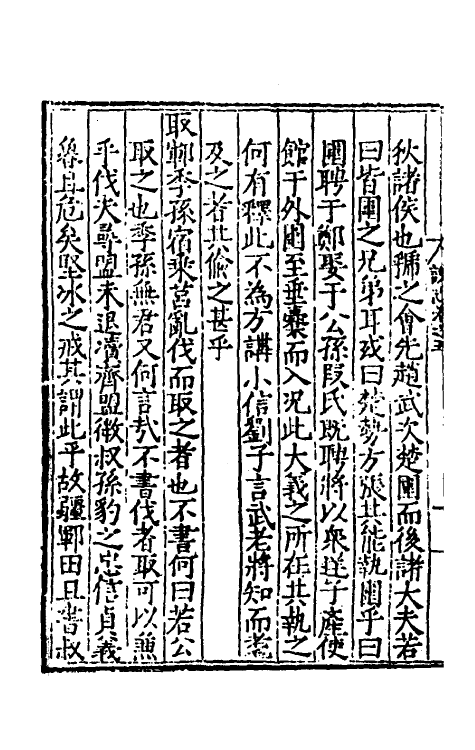 秋諸侯也虢之會先趙武次楚圍而後諸大夫若
曰皆圍之兄弟耳或曰楚勢方張其能執圍乎曰
圍聘于鄭娶于公孫段氏既聘將以衆逆子產使
館于外圍至垂櫜而入况此大義之所在其執之
何有釋此不為方講小信劉子言武老將知而耄
及之者其偷之甚乎
取鄆季孫宿乘莒亂伐而取之者也不書何曰若公
取之也季孫無君又何言哉不書伐者取可以兼
乎伐矣尋盟未退瀆齊盟微叔孫豹之忠信貞義
魯且危矣堅冰之戒其謂此乎故疆鄆田且書叔